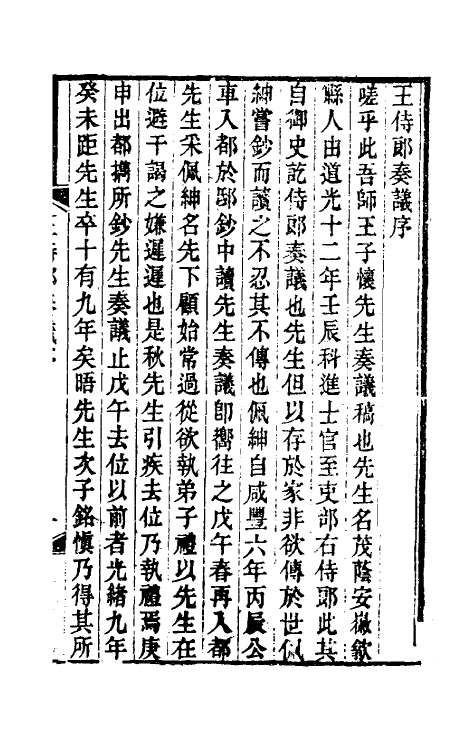 王侍郎奏議序
嗟乎此吾師王子懷先生奏議稿也先生名茂蔭安徽歙
縣人由道光十二年壬辰科進士官至吏部右侍郎此其
自御史訖侍郎奏議也先生但以存於家非欲傳於世佩
紳嘗鈔而讀之不忍其不傳也佩紳自咸豐六年丙辰公
車入都於邸鈔中讀先生奏議卽嚮往之戊午春再入都
先生采佩紳名先下顧始常過從欲執弟子禮以先生在
位避干謁之嫌遲遲也是秋先生引疾去位乃執禮焉庚
申出都攜所鈔先生奏議止戊午去位以前者光緒九年
癸未距先生卒十有九年矣晤先生次子銘愼乃得其所